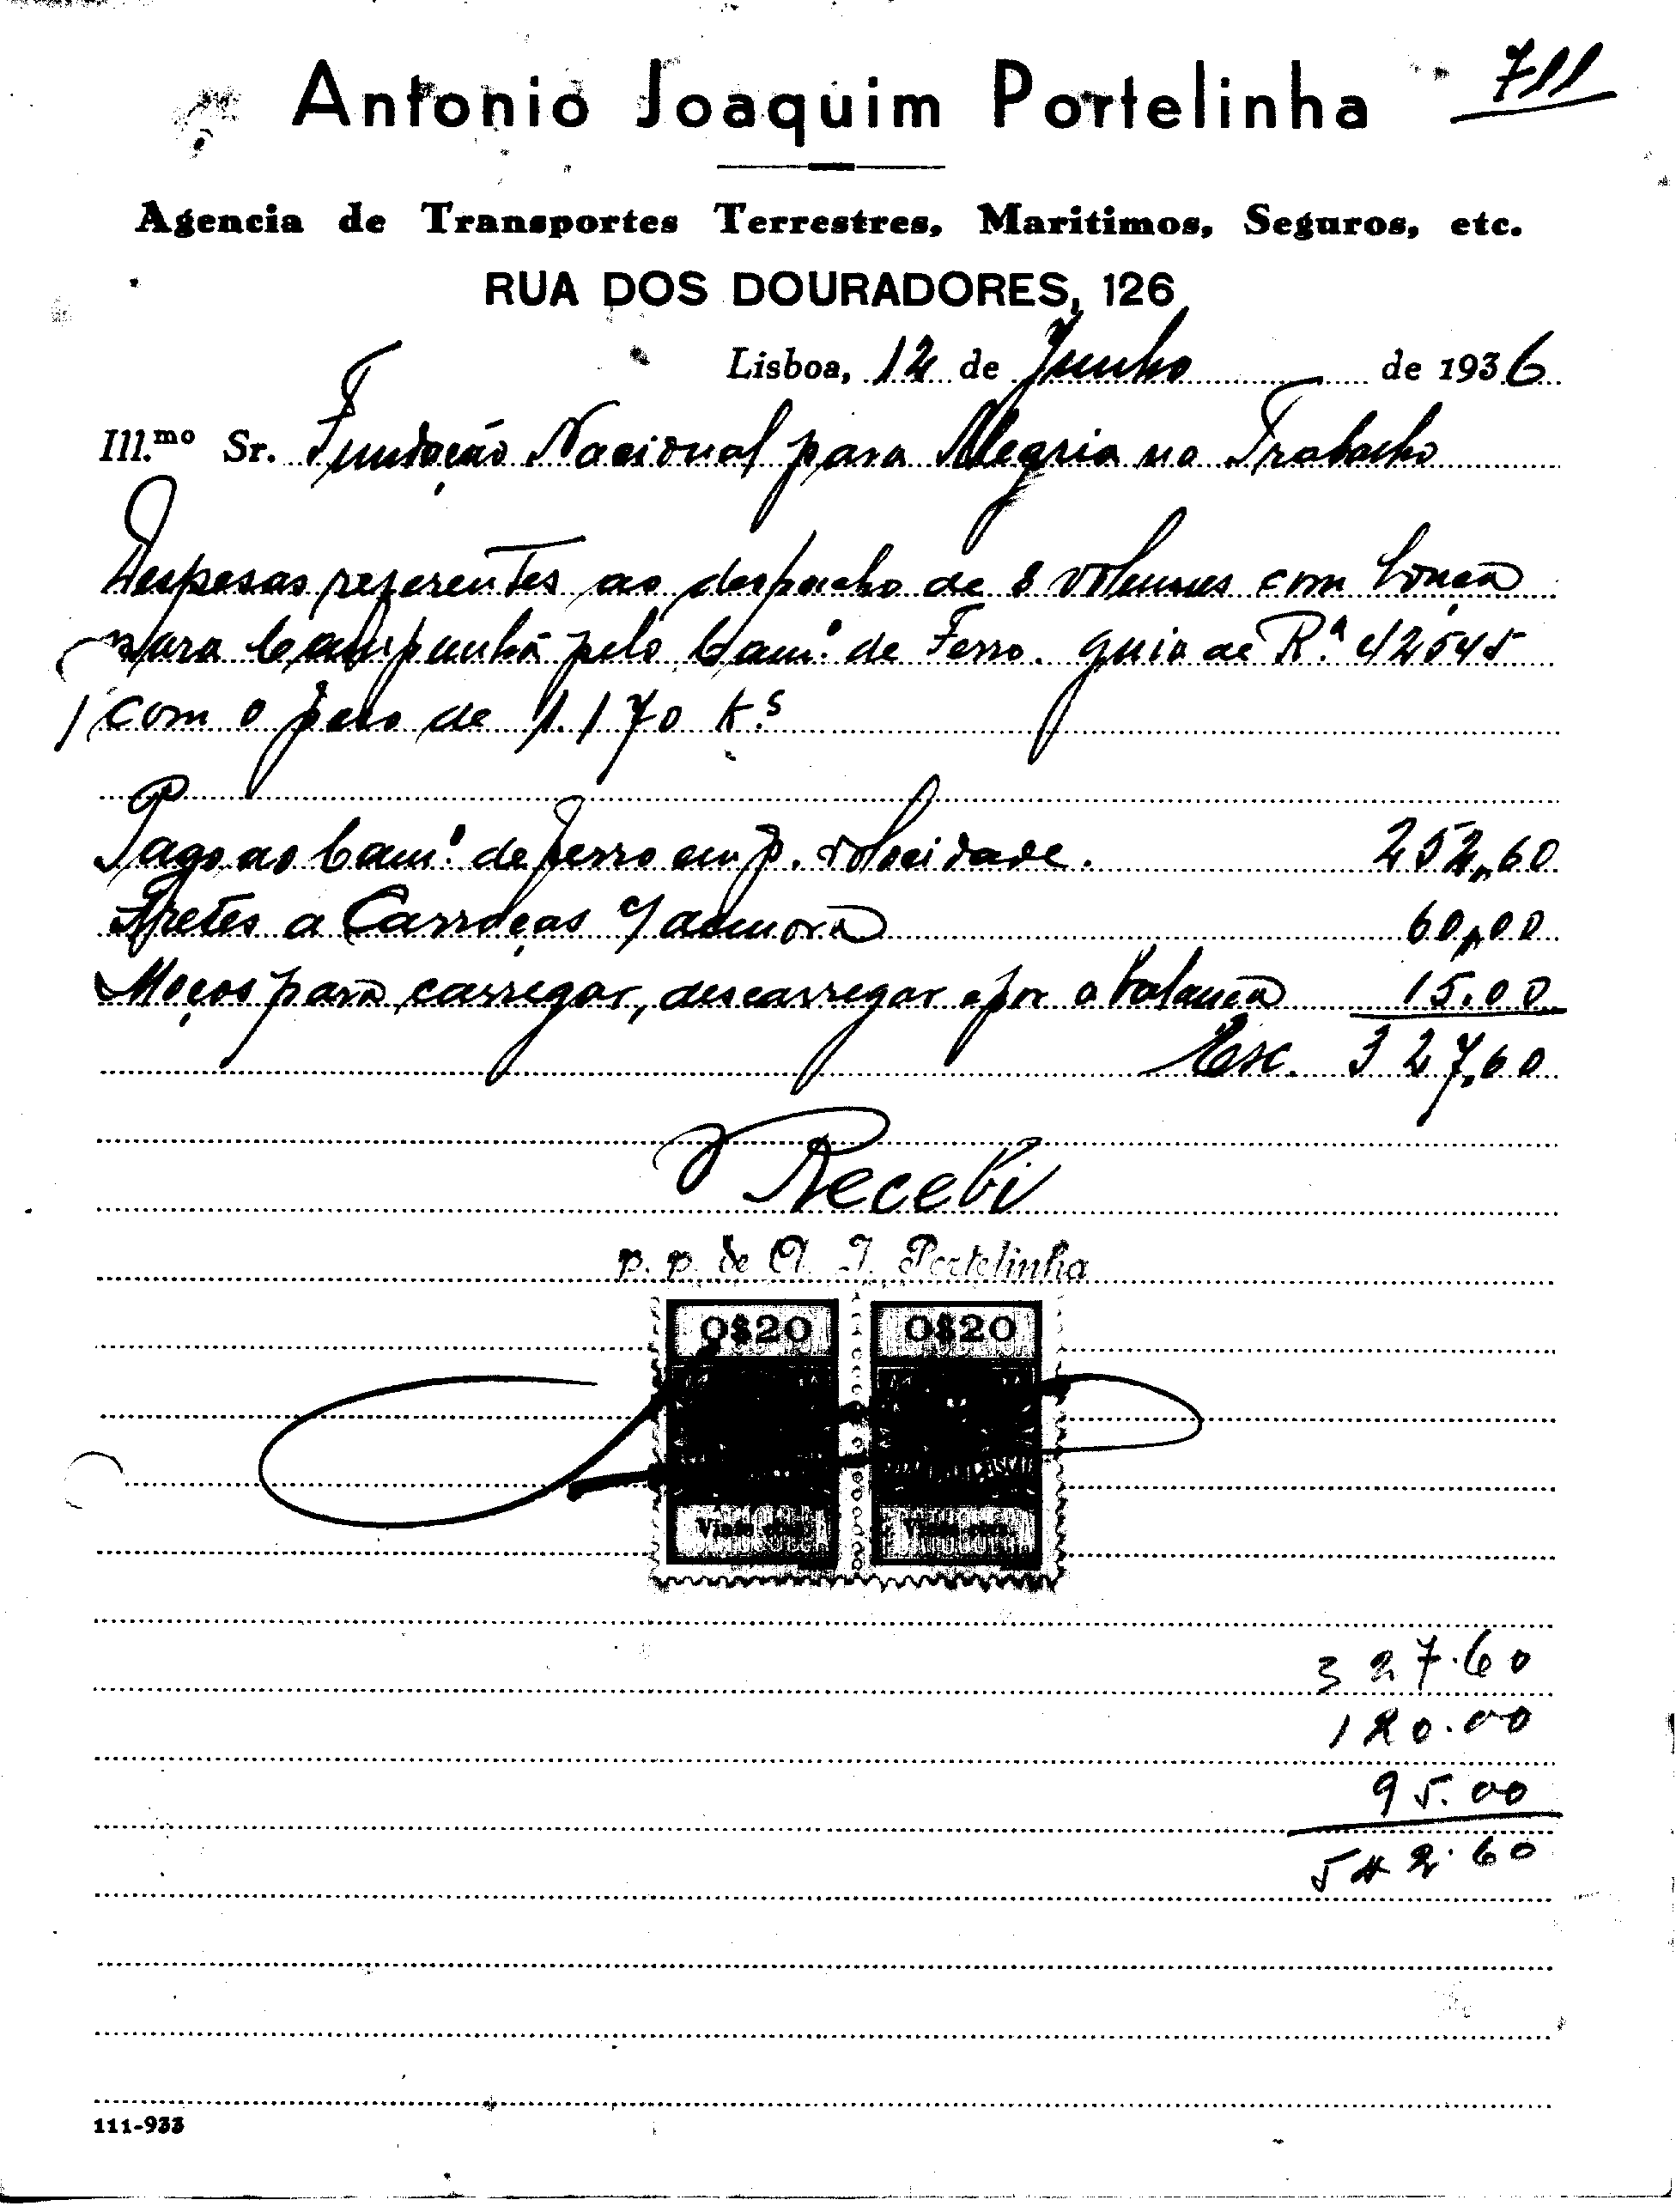 711
Antonio Joaquim Portelinha
Agencia de Transportes Terrestres, Maritimos, Seguros, etc.
RUA DOS DOURADORES, 126
Lisboa, 12 de Junho de 1936
Ill.mo Sr. Fundação Nacional para Alegria no Trabalho
Despesas referentes ao despacho de 8 volumes com louça
para Campanhã pelo Cam.º de Ferro. guia de R.ª 42545
com o peso de 1.170 k.s
Pago ao Cam.º de ferro em p. volocidade. 252,60
Fretes a Carroças c/ demora 60,00
Moços para carregar, descarregar e por a balança 15.00
Esc. 327,60
Recebi
p. p. de A. J. Portelinha
0$20 0$20
327.60
120.00
95.00
542.60
111-933